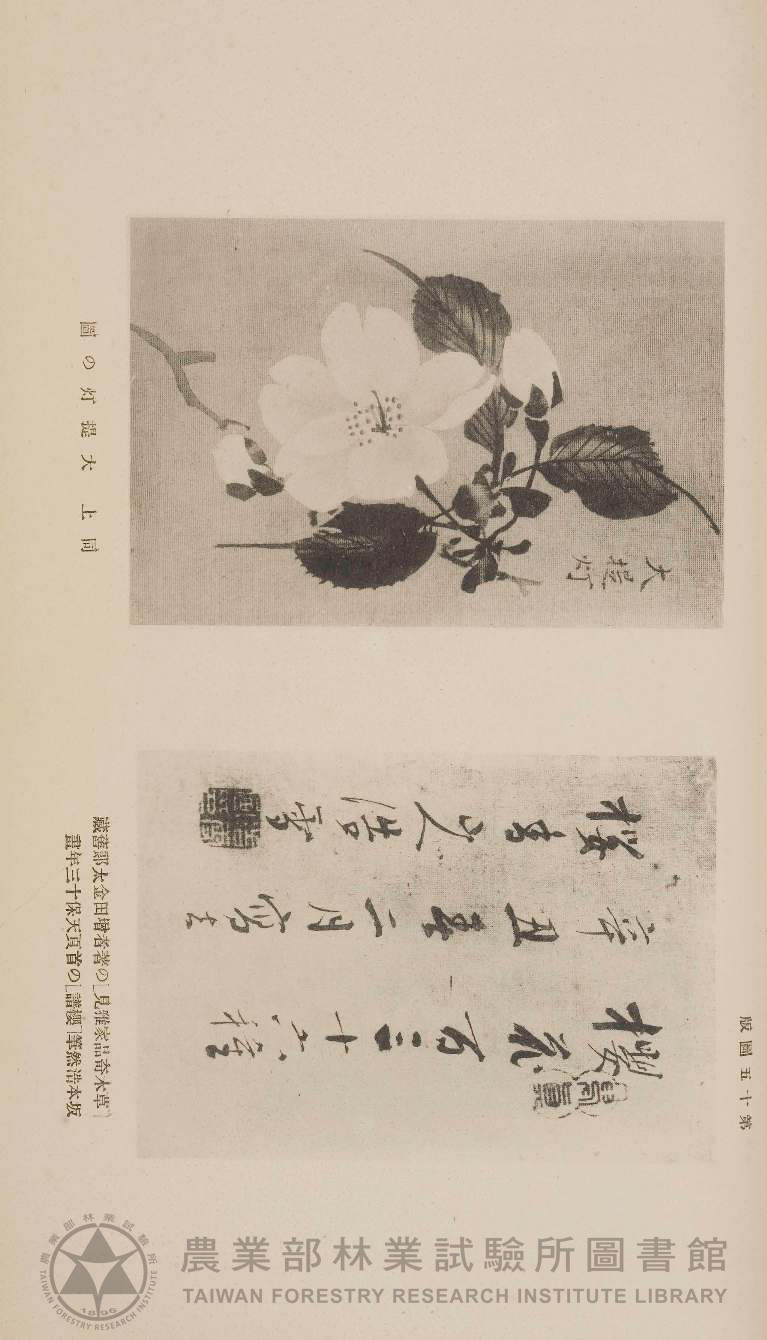 第十五圖版
櫻花百三十六種
辛丑春二月寫之
浩雪
「草木奇品家雅見」の著者增田金太郎舊藏
坂本浩然筆「櫻譜」の首頁天保十三年畫
大提灯
同上 大提灯の圖
農業部林業試驗所圖書館
TAIWAN FORESTRY RESEARCH INSTITUTE LIBRARY
農業部林業試驗所
TAIWAN FORESTRY RESEARCH INSTITUTE
1896